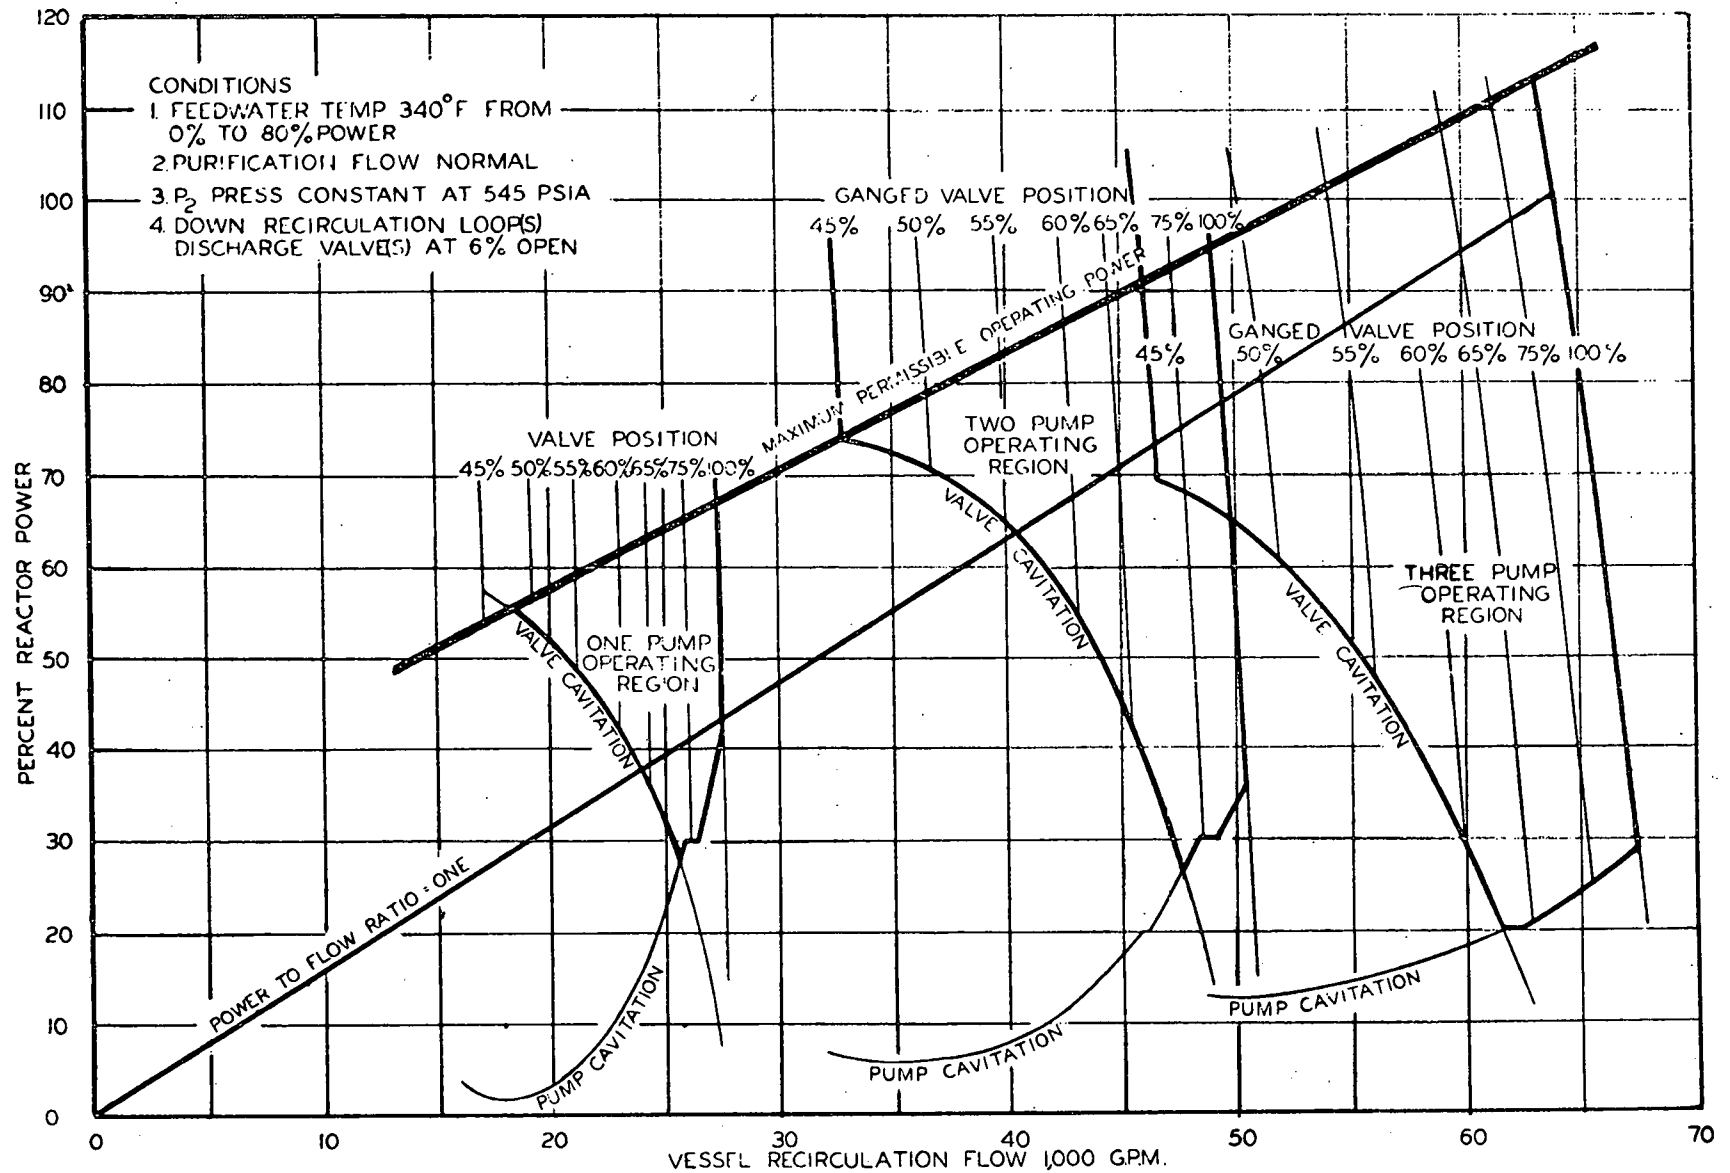 120
110
100
90
80
70
60
50
40
30
20
10
0
PERCENT REACTOR POWER
CONDITIONS
1. FEEDWATER TEMP 340°F FROM
0% TO 80% POWER
2. PURIFICATION FLOW NORMAL
3. P2 PRESS CONSTANT AT 545 PSIA
4. DOWN RECIRCULATION LOOP(S)
DISCHARGE VALVE(S) AT 6% OPEN
GANGED VALVE POSITION
45% 50% 55% 60% 65% 75% 100%
MAXIMUM PERMISSIBLE OPERATING POWER
GANGED VALVE POSITION
45% 50% 55% 60% 65% 75% 100%
VALVE POSITION
45% 50% 55% 60% 65% 75% 100%
TWO PUMP
OPERATING
REGION
VALVE CAVITATION
THREE PUMP
OPERATING
REGION
VALVE CAVITATION
ONE PUMP
OPERATING
REGION
VALVE CAVITATION
POWER TO FLOW RATIO = ONE
PUMP CAVITATION
PUMP CAVITATION
PUMP CAVITATION
0 10 20 30 40 50 60 70
VESSEL RECIRCULATION FLOW 1,000 G.P.M.